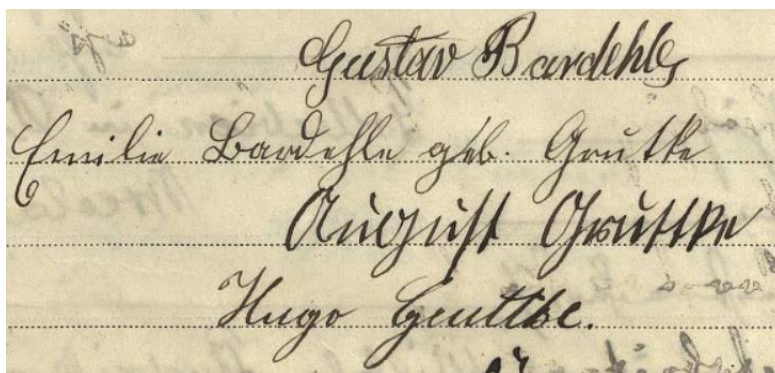 Gustav Bardehle
Emilie Bardehle geb. Grutke
August Gruttke
Hugo Gruttke.